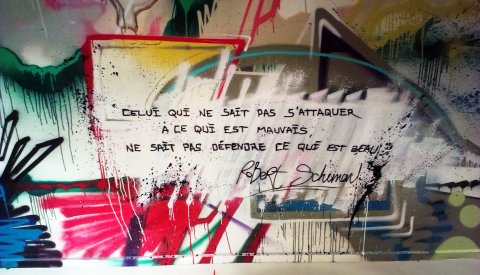 CELUI QUI NE SAIT PAS S'ATTAQUER
A CE QUI EST MAUVAIS,
NE SAIT PAS DÉFENDRE CE QUI EST BEAU
Robert Schuman